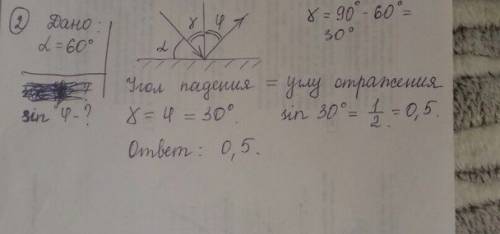 ② Дано:
α = 60°
sin φ - ?
α γ φ
γ = 90° - 60° =
30°
Угол падения = углу отражения
γ = φ = 30°. sin 30° = 1/2 = 0,5.
Ответ: 0,5.